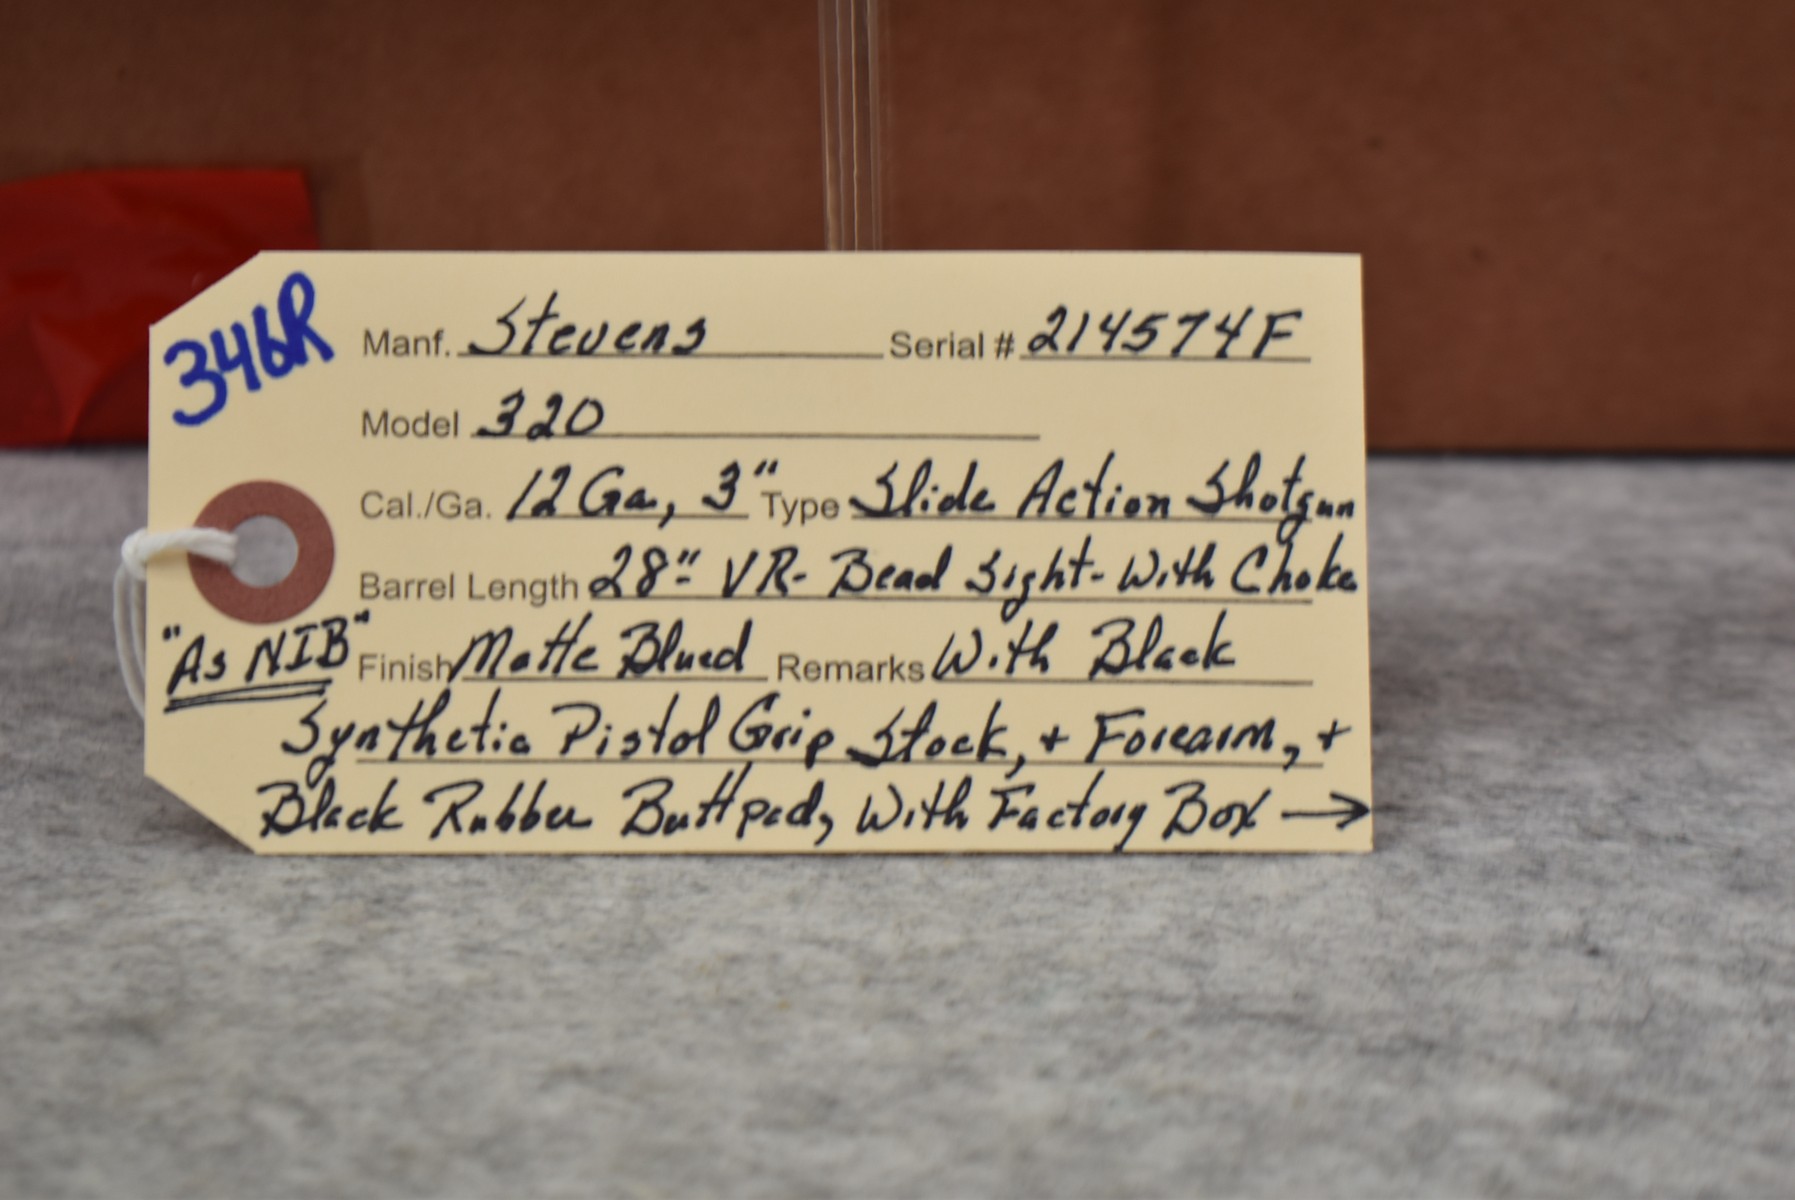 346R
Manf. Stevens Serial # 214574F
Model 320
Cal./Ga. 12 Ga, 3" Type Slide Action Shotgun
Barrel Length 28" VR- Bead Sight- With Choke
"As NIB" Finish Matte Blued Remarks With Black
Synthetic Pistol Grip Stock, + Forearm, +
Black Rubber Buttpad, With Factory Box →